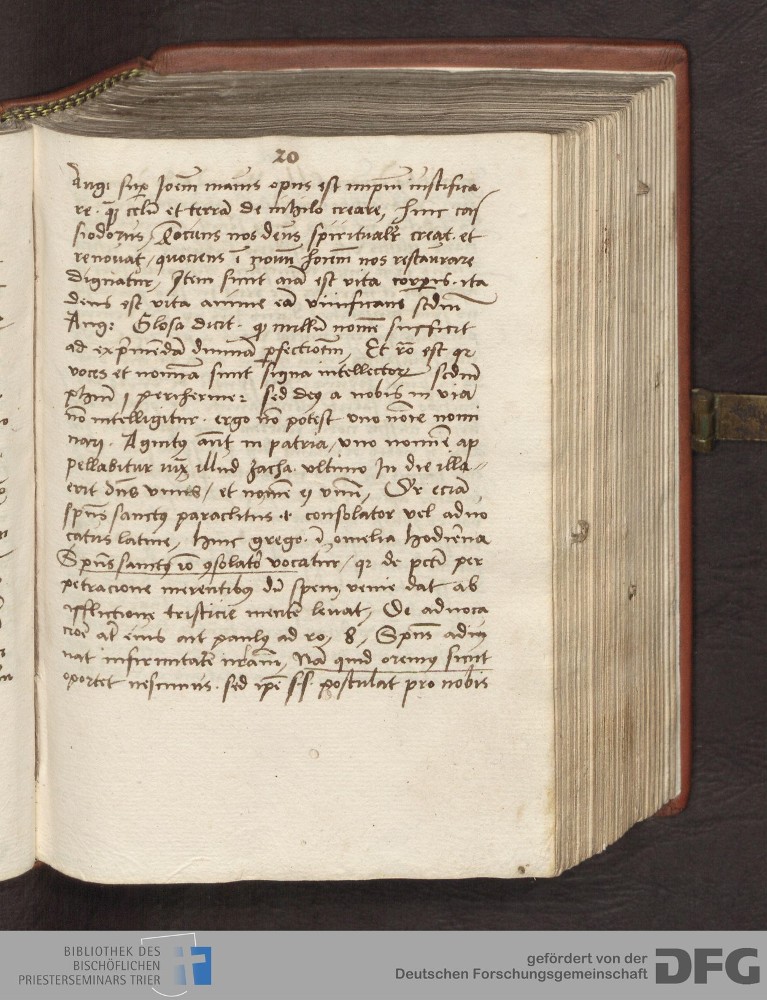 20
Aug: sup Joem maius opus est impiu iustifica
re. q celu et terra de nihilo creare, hinc cas
siodorus, Quociens nos deus spiritualr creat et
renouat, quociens i nouu hoiem nos restaurare
dignatur, Item sicut aia est vita corporis. ita
deus est vita anime ea viuificans scdm
Aug: Glosa dicit. q nullu nome sufficit
ad exprimenda diuina perfectiom, Et ro est qr
voces et nomina sunt signa intellectuu scdm
phm i periherme: sed deus a nobis in via
no intelligitur. ergo no potest vno noie nomi
nari. Agnitus aut in patria, vno nomine ap
pellabitur iux illud Zacha. vltimo In die illa
erit dns vnus, et nomen ei vnu, Dr ecia
spus sanctus paraclitus .i. consolator vel aduo
catus latine, hinc grego. i omelia hodierna
Spus sanctus io consolator vocatur, qr de pcti per
petracione merentibus du spem venie dat ab
afflictione tristicie mente leuat, De aduoca
cioe at eius ait paulus ad ro. 8, Spus adiu
uat infirmitate nram, Na quid oremus sicut
oportet nescimus. sed ipe s.s. postulat pro nobis
BIBLIOTHEK DES
BISCHÖFLICHEN
PRIESTERSEMINARS TRIER
gefördert von der
Deutschen Forschungsgemeinschaft
DFG